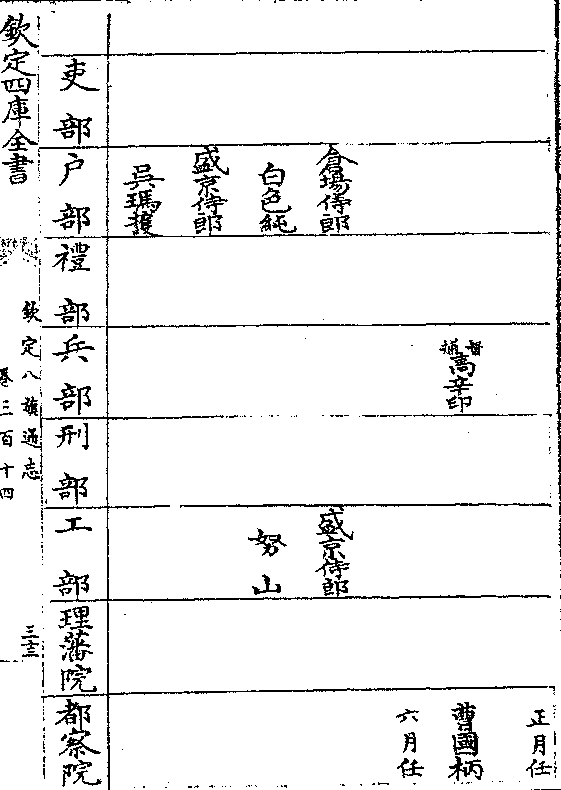 正月任
督捕高辛印
曹國柄
六月任
倉場侍郎
盛京侍郎
白色純
努山
盛京侍郎
吳瑪護
吏部
戶部
禮部
兵部
刑部
工部
理藩院
都察院
欽定四庫全書
欽定八旗通志
卷三百十四